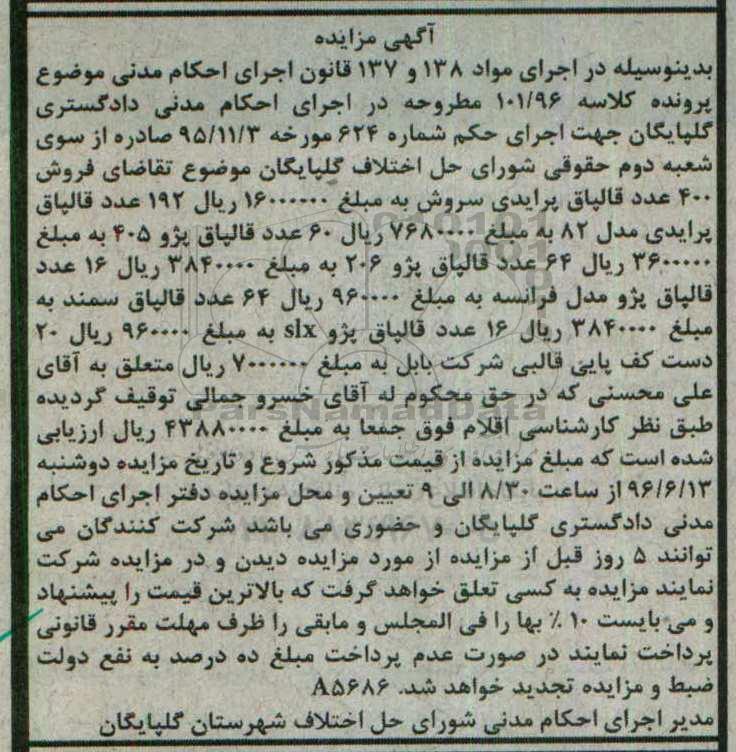 آگهی مزایده
بدینوسیله در اجرای مواد ۱۳۸ و ۱۳۷ قانون اجرای احکام مدنی موضوع
پرونده کلاسه ۱۰۱/۹۶ مطروحه در اجرای احکام مدنی دادگستری
گلپایگان جهت اجرای حکم شماره ۶۲۴ مورخه ۹۵/۱۱/۳ صادره از سوی
شعبه دوم حقوقی شورای حل اختلاف گلپایگان موضوع تقاضای فروش
۴۰۰ عدد قالپاق پرایدی سروش به مبلغ ۱۶۰۰۰۰۰۰ ریال ۱۹۲ عدد قالپاق
پرایدی مدل ۸۲ به مبلغ ۷۶۸۰۰۰۰ ریال ۶۰ عدد قالپاق پژو ۴۰۵ به مبلغ
۳۶۰۰۰۰۰ ریال ۶۴ عدد قالپاق پژو ۲۰۶ به مبلغ ۳۸۴۰۰۰۰ ریال ۱۶ عدد
قالپاق پژو مدل فرانسه به مبلغ ۹۶۰۰۰۰ ریال ۶۴ عدد قالپاق سمند به
مبلغ ۳۸۴۰۰۰۰ ریال ۱۶ عدد قالپاق پژو slx به مبلغ ۹۶۰۰۰۰ ریال ۲۰
دست کف پایی قالبی شرکت بابل به مبلغ ۷۰۰۰۰۰۰ ریال متعلق به آقای
علی محسنی که در حق محکوم له آقای خسرو جمالی توقیف گردیده
ParsNamadData
طبق نظر کارشناسی اقلام فوق جمعا به مبلغ ۴۳۸۸۰۰۰۰ ریال ارزیابی
شده است که مبلغ مزایده از قیمت مذکور شروع و تاریخ مزایده دوشنبه
۹۶/۶/۱۳ از ساعت ۸/۳۰ الی ۹ تعیین و محل مزایده دفتر اجرای احکام
مدنی دادگستری گلپایگان و حضوری می باشد شرکت کنندگان می
توانند ۵ روز قبل از مزایده از مورد مزایده دیدن و در مزایده شرکت
نمایند مزایده به کسی تعلق خواهد گرفت که بالاترین قیمت را پیشنهاد
و می بایست ۱۰ ٪ بها را فی المجلس و مابقی را ظرف مهلت مقرر قانونی
پرداخت نمایند در صورت عدم پرداخت مبلغ ده درصد به نفع دولت
ضبط و مزایده تجدید خواهد شد. A۵۶۸۶
مدیر اجرای احکام مدنی شورای حل اختلاف شهرستان گلپایگان